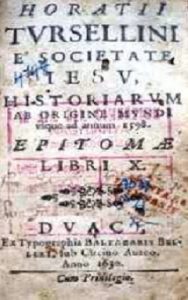 HORATII
TVRSELLINI
E SOCIETATE
IESV,
HISTORIARVM
AB ORIGINE MVNDI
vsque ad annum 1598.
EPITOMÆ
LIBRI X.
DVACI,
Ex Typographia BALTAZARIS BEL-
LERI, sub Circino Aureo.
Anno 1630.
Cum Privilegio.